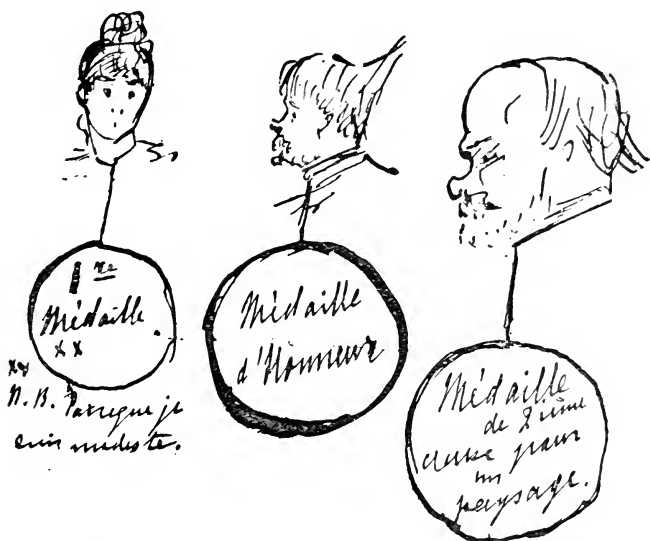 1re
Médaille.
x x
xx
N.B. Parceque je
suis modeste.
Médaille
d'Honneur
Médaille
de 2ième
classe pour
un
paysage.